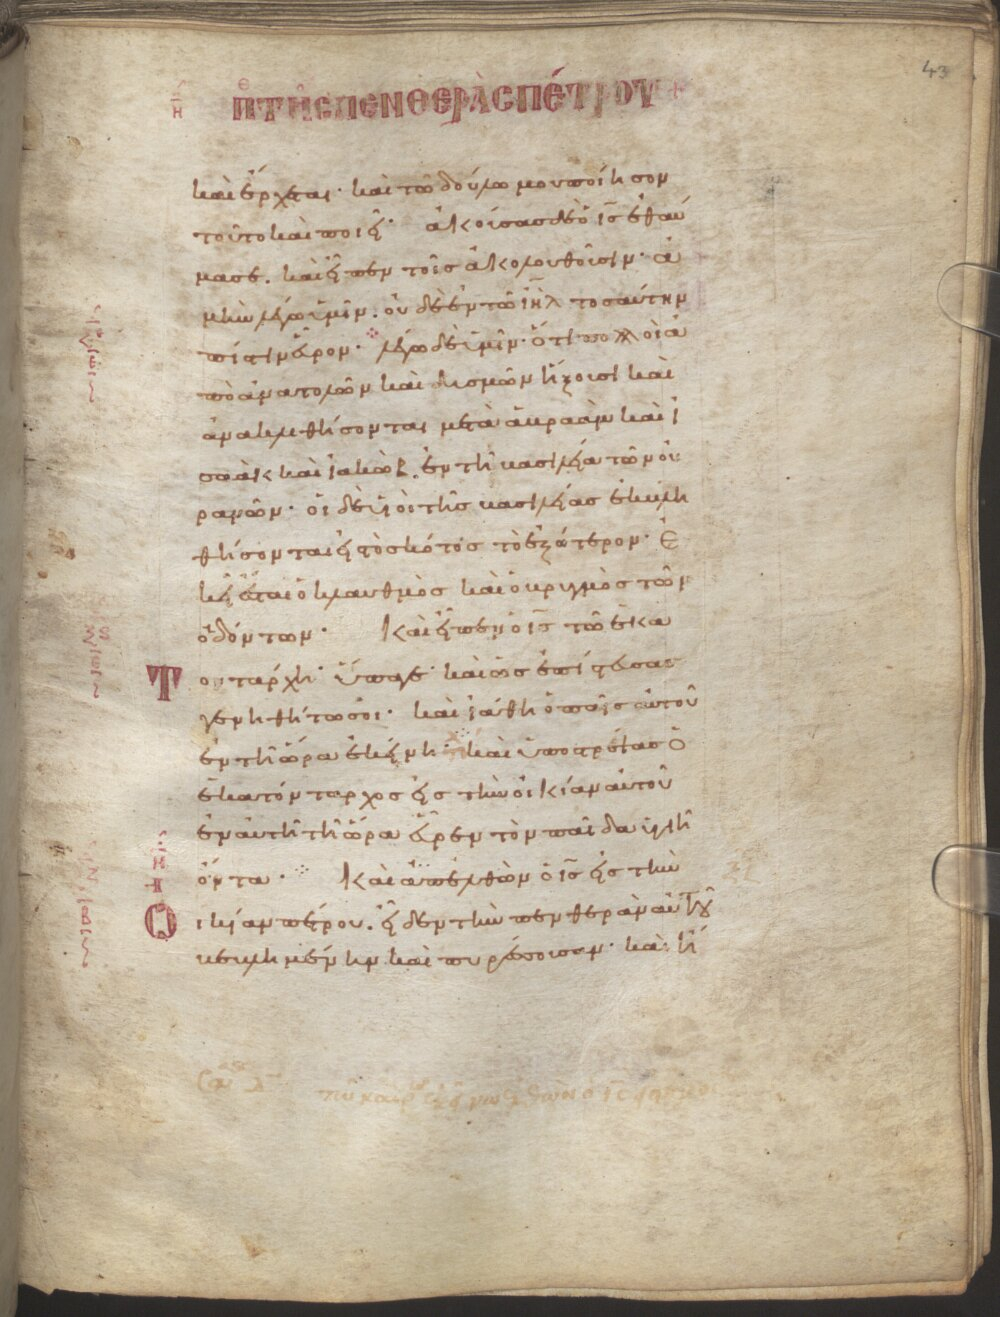 43
Η ΠΤῆς ΠΕΝΘΕΡᾶς ΠέΤΡΟΥ +
καὶ ἔρχεται· καὶ τῶ δούλω μου ποίησον
τοῦτο καὶ ποιεῖ· ἀκούσας δὲ ὁ ι̅ς̅ ἐθαύ
μασε. καὶ εἶπεν τοῖς ἀκολουθοῦσιν· ἀ
μὴν λέγω ὑμῖν. οὐδὲ ἐν τῶ ι̅η̅λ̅ τοσαύτην
πίστιν εὗρον· λέγω δὲ ὑμῖν· ὅτι πολλοὶ ἀ
πὸ ἀνατολῶν καὶ δυσμῶν ἥξουσι καὶ
ἀνακλιθήσονται μετὰ ἀβραὰμ καὶ ἰ
σαὰκ καὶ ἰακὼβ. ἐν τῆ βασιλεία τῶν οὐ
ρανῶν· οἱ δὲ υἱοὶ τῆς βασιλείας ἐκβλη
θήσονται εἰς τὸ σκότος τὸ ἐξώτερον· ἐ
κεῖ ἔσται ὁ κλαυθμὸς καὶ ὁ βρυγμὸς τῶν
ὀδόντων· Καὶ εἶπεν ὁ ι̅ς̅ τῶ ἑκα
Τοντάρχη· ὕπαγε· καὶ ὡς ἐπίστευσας
γενηθήτω σοι· καὶ ἰάθη ὁ παῖς αὐτοῦ
ἐν τῆ ὥρα ἐκείνη· καὶ ὑποστρέψας ὁ
ἑκατόνταρχος εἰς τὴν οἰκίαν αὐτοῦ
ἐν αὐτῆ τῆ ὥρα εὗρεν τὸν παῖδα ὑγιῆ
ὄντα· Καὶ ἀπελθὼν ὁ ι̅ς̅ εἰς τὴν
Οἰκίαν πέτρου. εἶδεν τὴν πενθερὰν αὐτοῦ
βεβλημένην καὶ πυρέσσουσαν· καὶ ἥ